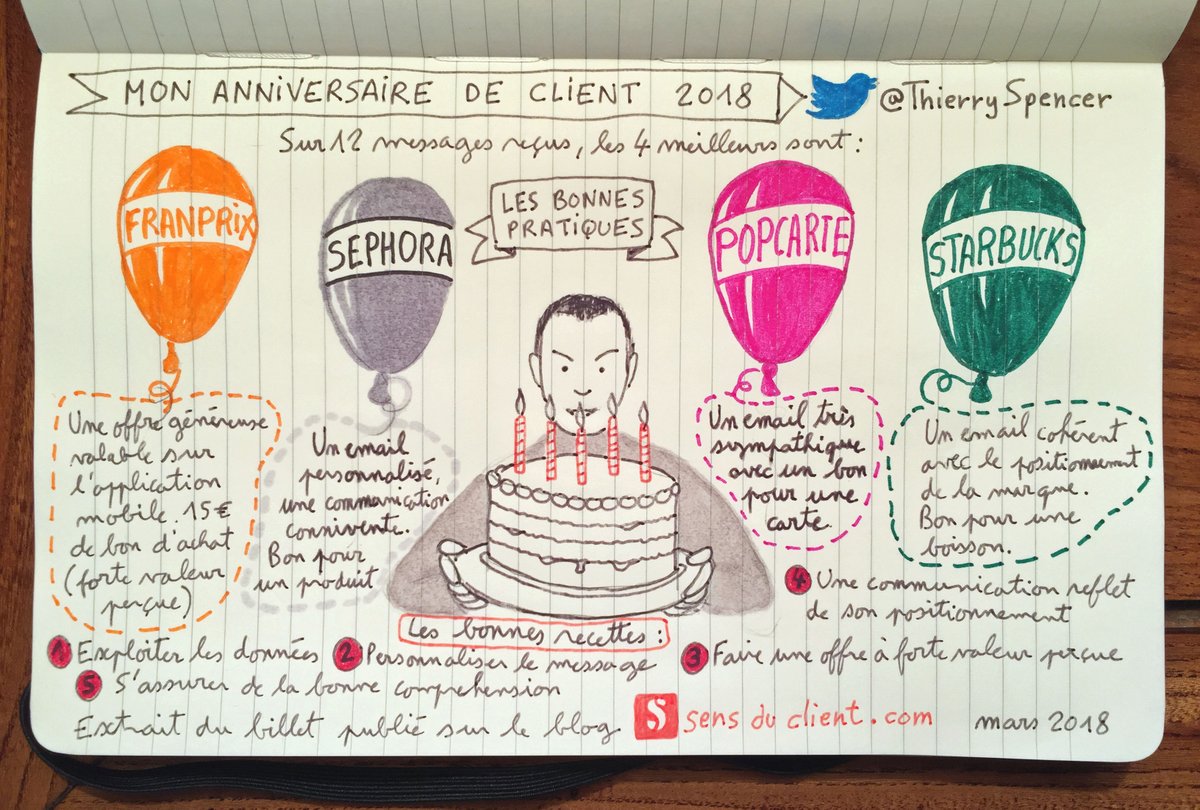 MON ANNIVERSAIRE DE CLIENT 2018
@ThierrySpencer
Sur 12 messages reçus, les 4 meilleurs sont :
FRANPRIX
SEPHORA
LES BONNES
PRATIQUES
POPCARTE
STARBUCKS
Une offre généreuse
valable sur
l'application
mobile. 15€
de bon d'achat
(forte valeur
perçue)
Un email
personnalisé,
une communication
connivente.
Bon pour
un produit
Un email très
sympathique
avec un bon
pour une
carte.
Un email cohérent
avec le positionnement
de la marque.
Bon pour une
boisson.
4 Une communication reflet
de son positionnement
Les bonnes recettes :
1 Exploiter les données 2 Personnaliser le message 3 Faire une offre à forte valeur perçue
5 S'assurer de la bonne comprehension
Extrait du billet publié sur le blog S sens du client.com mars 2018